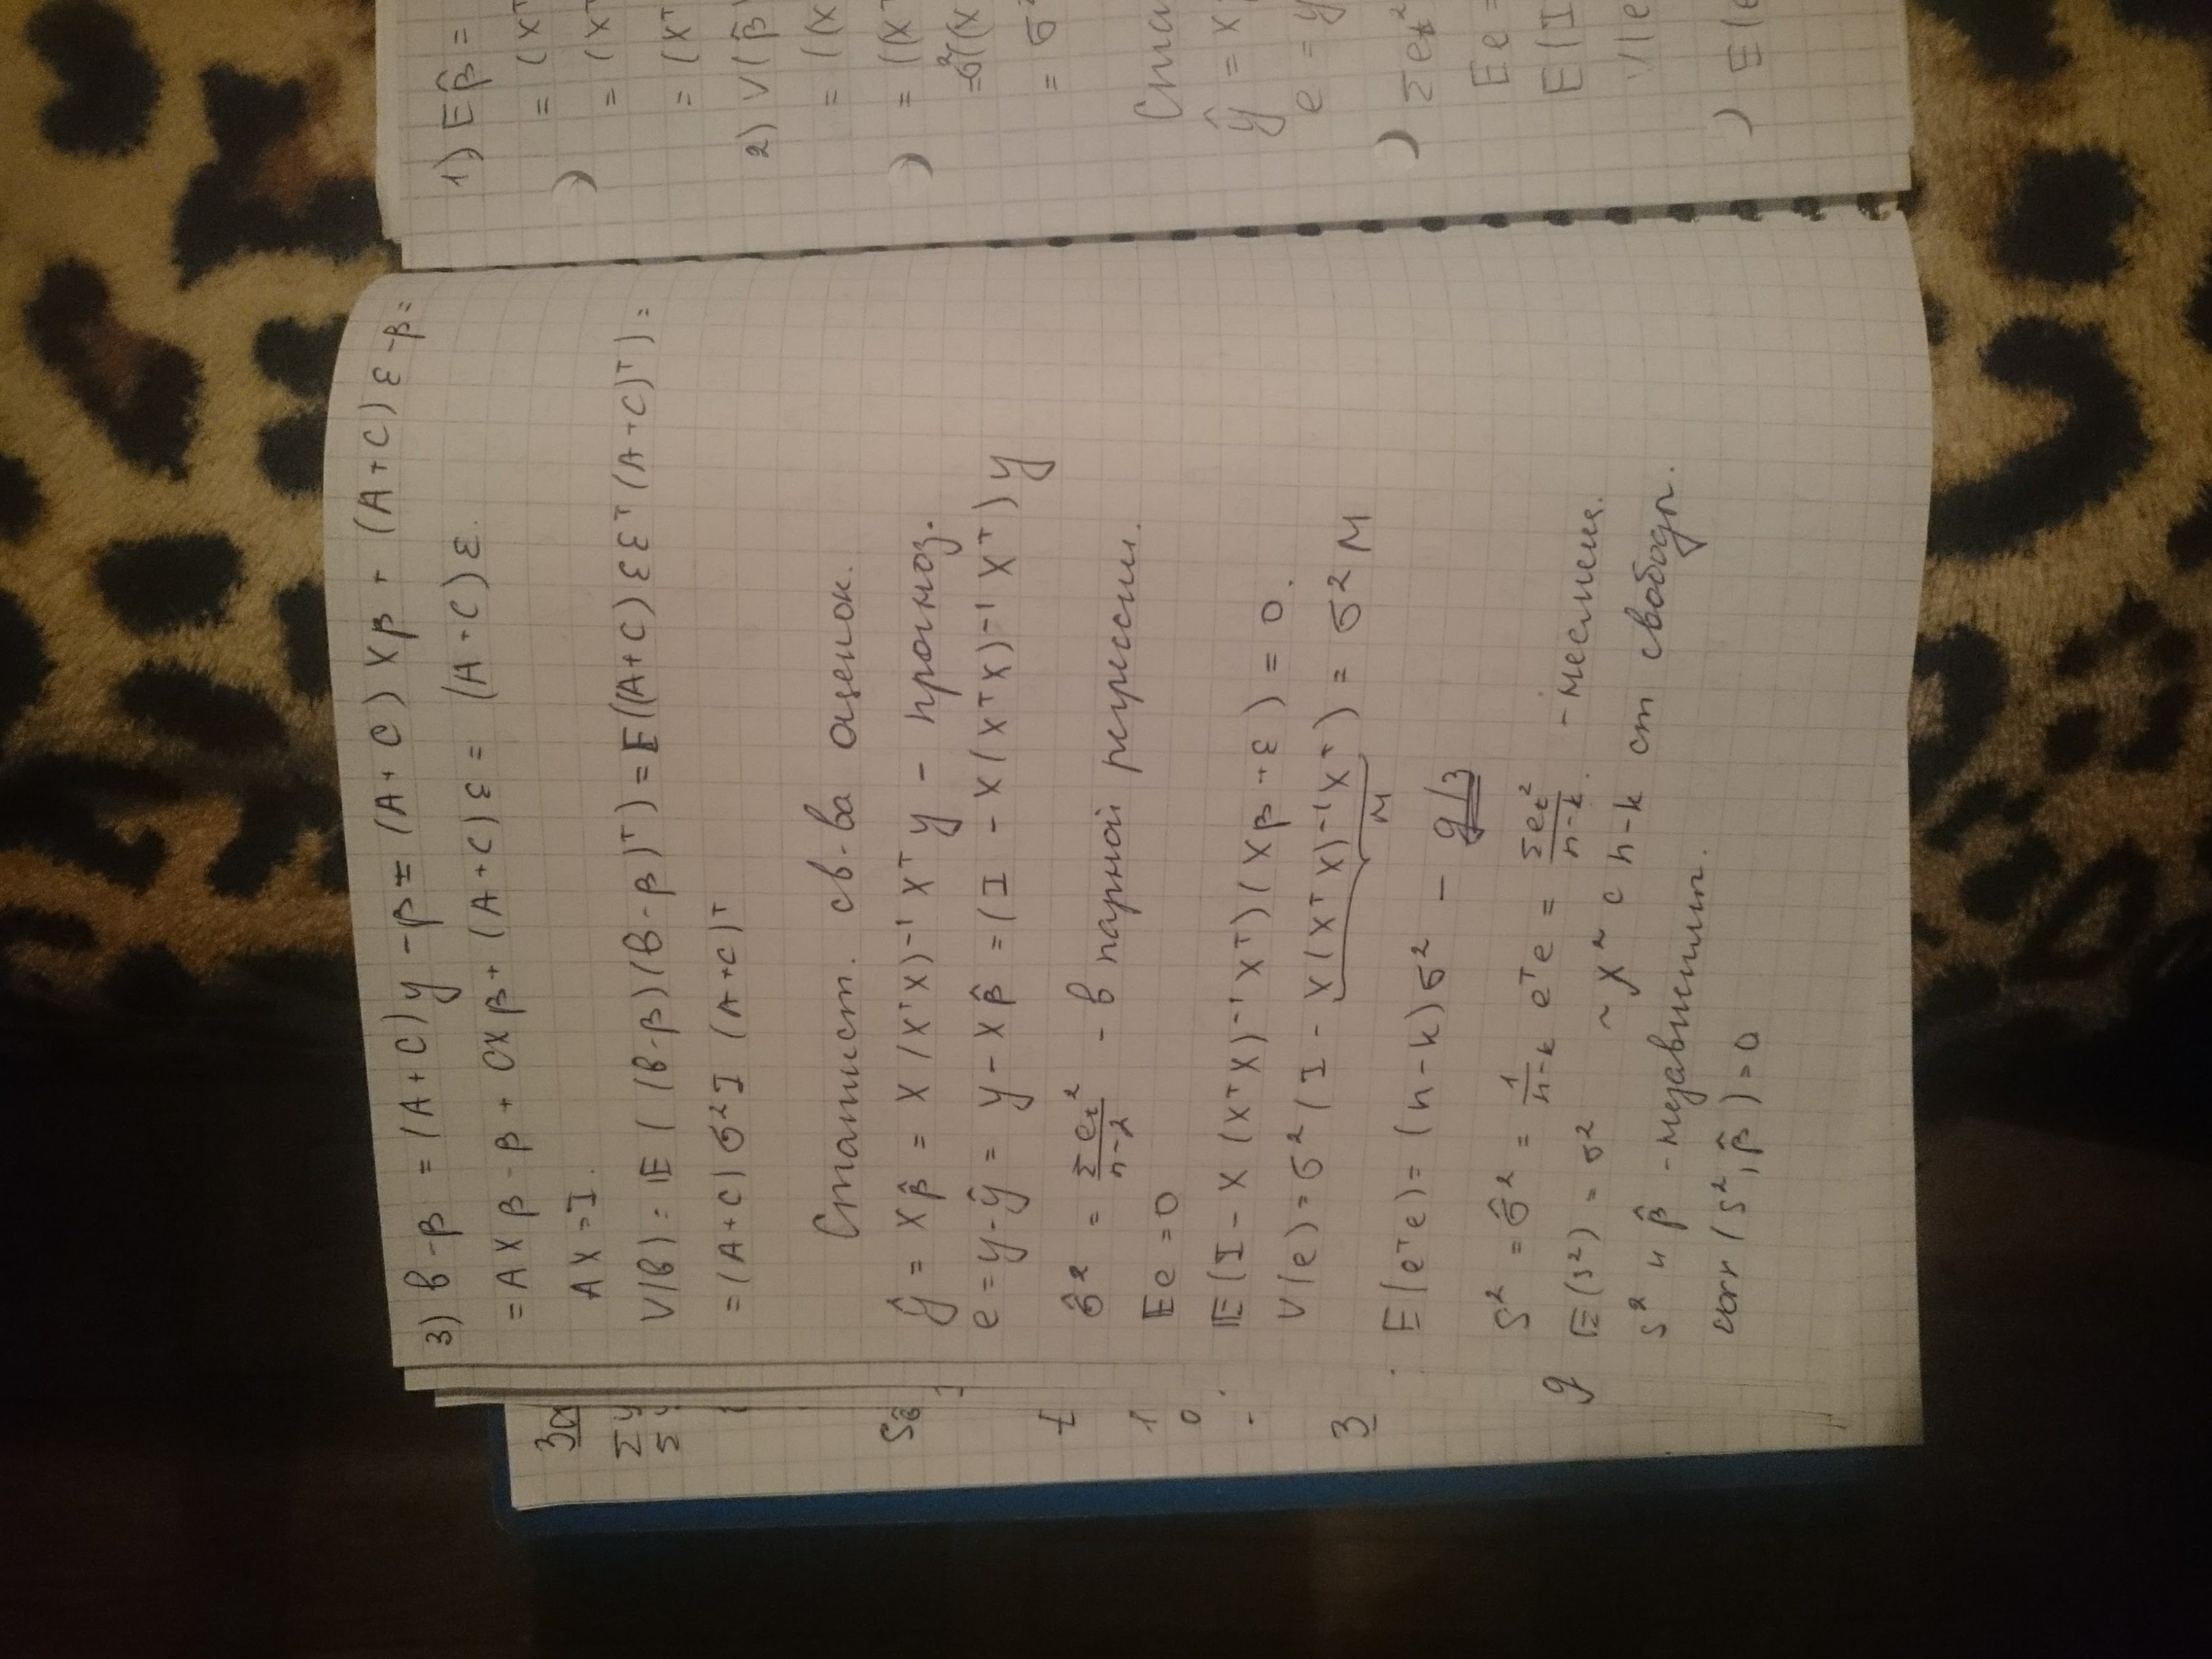 3) b - β = (A + C) y - β = (A + C) Xβ + (A + C) ε - β =
= AXβ - β + CXβ + (A + C) ε = (A + C) ε.
AX = I.
V(b) = E ((b - β)(b - β)ᵀ) = E((A + C) ε εᵀ (A + C)ᵀ) =
= (A + C) σ² I (A + C)ᵀ
Статист. св-ва оценок.
ŷ = Xβ̂ = X (XᵀX)⁻¹ Xᵀ y - прогноз.
e = y - ŷ = y - Xβ̂ = (I - X (XᵀX)⁻¹ Xᵀ) y
σ̂² = Σeₜ² / n-2 - в парной регрессии.
E e = 0
E (I - X (XᵀX)⁻¹ Xᵀ)(Xβ + ε) = 0.
V(e) = σ² (I - X (XᵀX)⁻¹ Xᵀ) = σ² M
M
E (eᵀe) = (n - k) σ² - g/з
S² = σ̂² = 1/n-k eᵀe = Σeₜ² / n-k - несмещ.
E (s²) = σ² ~ χ² с n-k ст свободы.
g
s² и β̂ - независимы.
corr (s², β̂) = 0
1) E β̂ =
= (Xᵀ
= (Xᵀ
= (Xᵀ
2) V(β̂)
= ((X
= ((X
= σ²((X
= σ²
Ста
ŷ = X
e = y
Σeₜ²
E e =
E (I
V(e
E (e
За
Σ y
Σ y
t
1
0
3